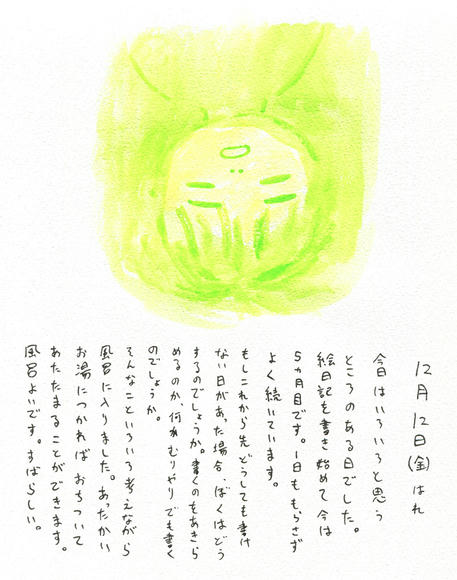 12月12日(金)はれ
今日はいろいろと思う
ところのある日でした。
絵日記を書き始めて今は
5ヵ月目です。1日ももらさず
よく続いています。
もしこれから先どうしても書け
ない日があった場合、ぼくはどう
するのでしょうか。書くのをあきら
めるのか、何かむりやりでも書く
のでしょうか。
そんなこといろいろ考えながら
風呂に入りました。あったかい
お湯につかれば おちついて
あたたまることができます。
風呂よいです。すばらしい。